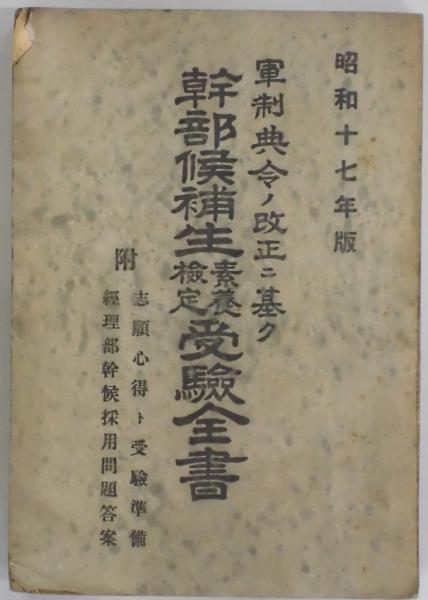 昭和十七年版
軍制典令ノ改正ニ基ク
幹部候補生素養檢定受驗全書
附
志願心得ト受驗準備
經理部幹候採用問題答案